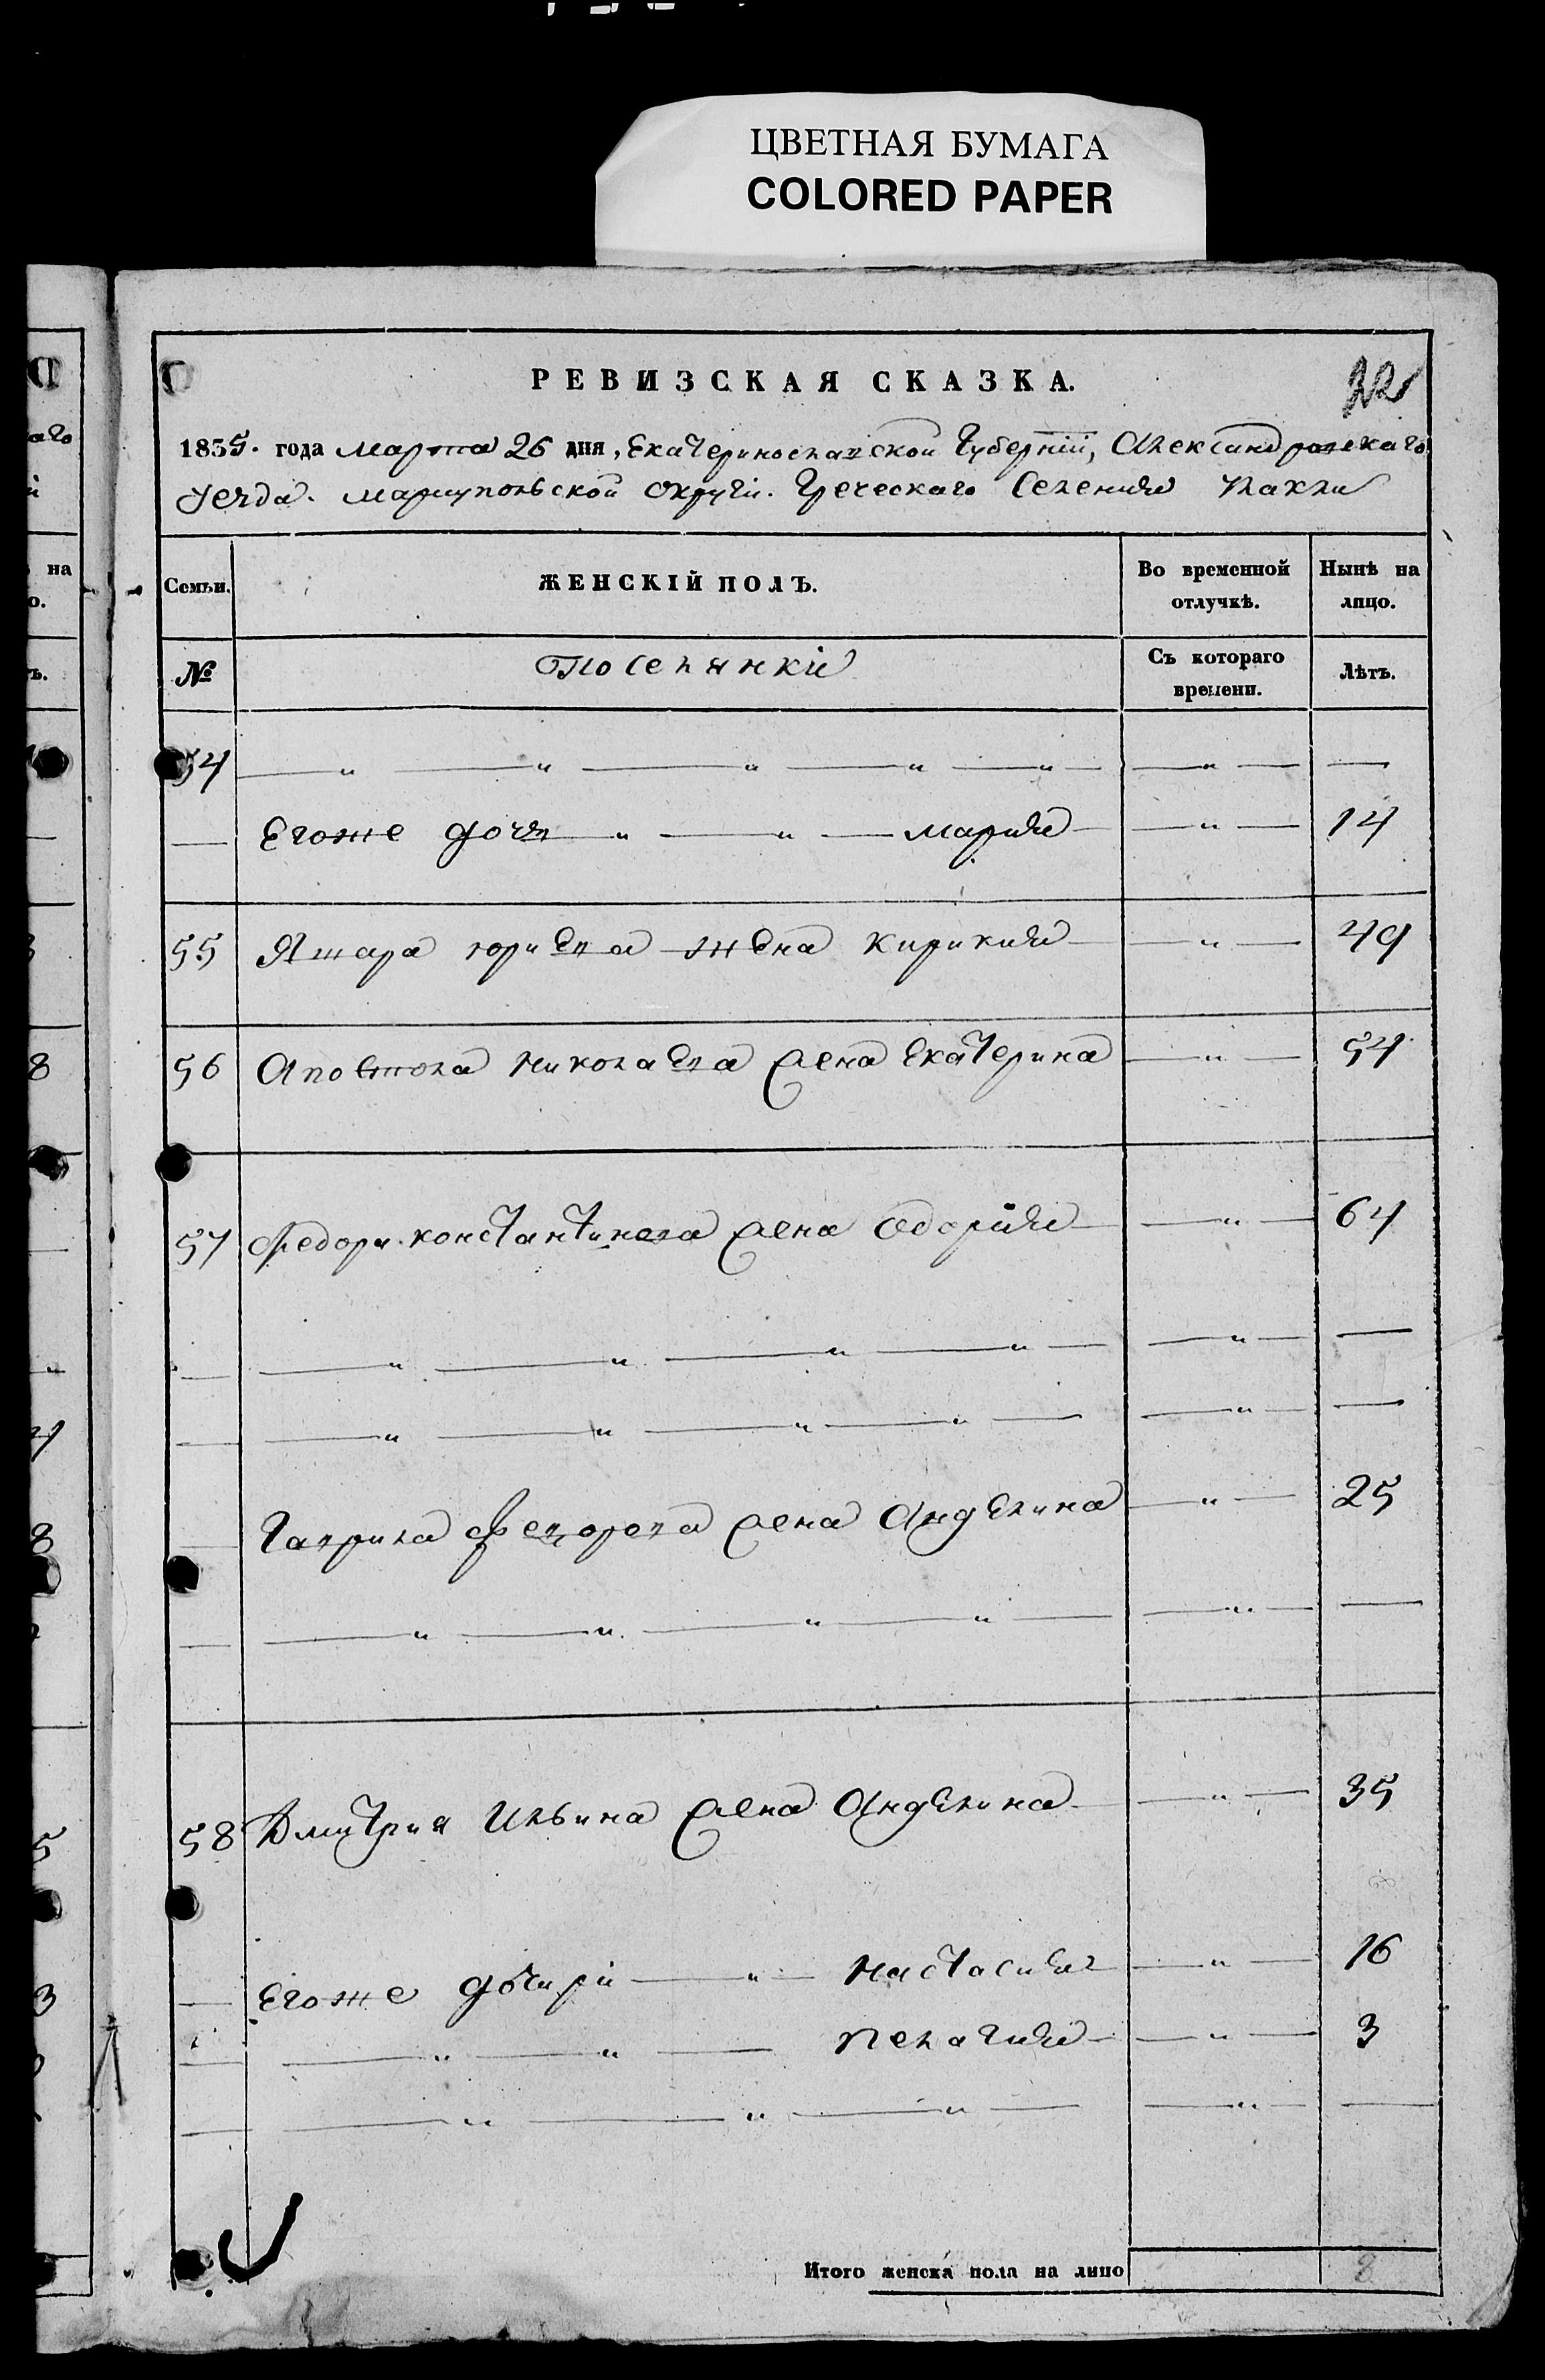 ЦВЕТНАЯ БУМАГА
COLORED PAPER
РЕВИЗСКАЯ СКАЗКА.
1835. года марта 26 дня, Екатеринославской Губерніи, Александровскаго
уезда. мариупольской округи. Греческаго Селения
Семьи.
ЖЕНСКІЙ ПОЛЪ.
Во временной отлучкѣ.
Нынѣ на лицо.
№
Поселянкіи
Съ котораго времени.
Лѣтъ.
54 — " — " — " — " — " — — " — —
— Егоже дочь — " — " — мария — " — 14
55 юриева жена кирикия — " — 49
56 Апостола николаева жена Екатерина — " — 54
57 Федори константинова жена Одория — " — 64
— — " — " — " — " — — " — —
— — " — " — " — " — — " — —
— Гаврила Федорова жена Анделина — " — 25
— — " — " — " — " — — " — —
58 Дмитрия Ильина жена Анделина — " — 35
— Егоже дочири — " — настасия — " — 16
— — " — " — пелагия — " — 3
— — " — " — " — — " — —
Итого женска пола на лицо 8